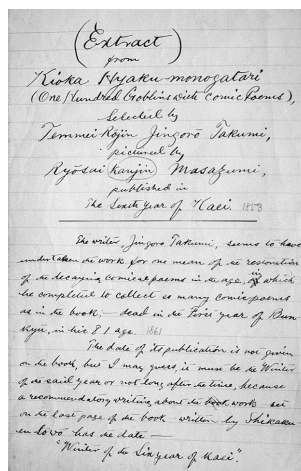 (Extract)
from
Kioka Hyaku-monogatari
(One Hundred Goblins with Comic Poems),
Selected by
Temmei Rojin Jingorō Takumi,
pictured by
Ryōsai (Kanjin) Masazumi,
published in
The Sixth Year of Kaei. 1853
The writer, Jingoro Takumi, seems to have
undertaken the work for one mean of the restoration
of the decaying comical poems in the age, in which
he completed to collect so many comic poems
as in the book; — dead in the First year of Bun
Kyu, in his 81 age. 1861
The date of its publication is not given
on the book, but I may guess, it must be the Winter
of the said year or not long after the time, because
a recommendatory writing about the book work set
on the last page of the book written by Shikaku
en has the date —
"Winter of the Six year of Kaei"